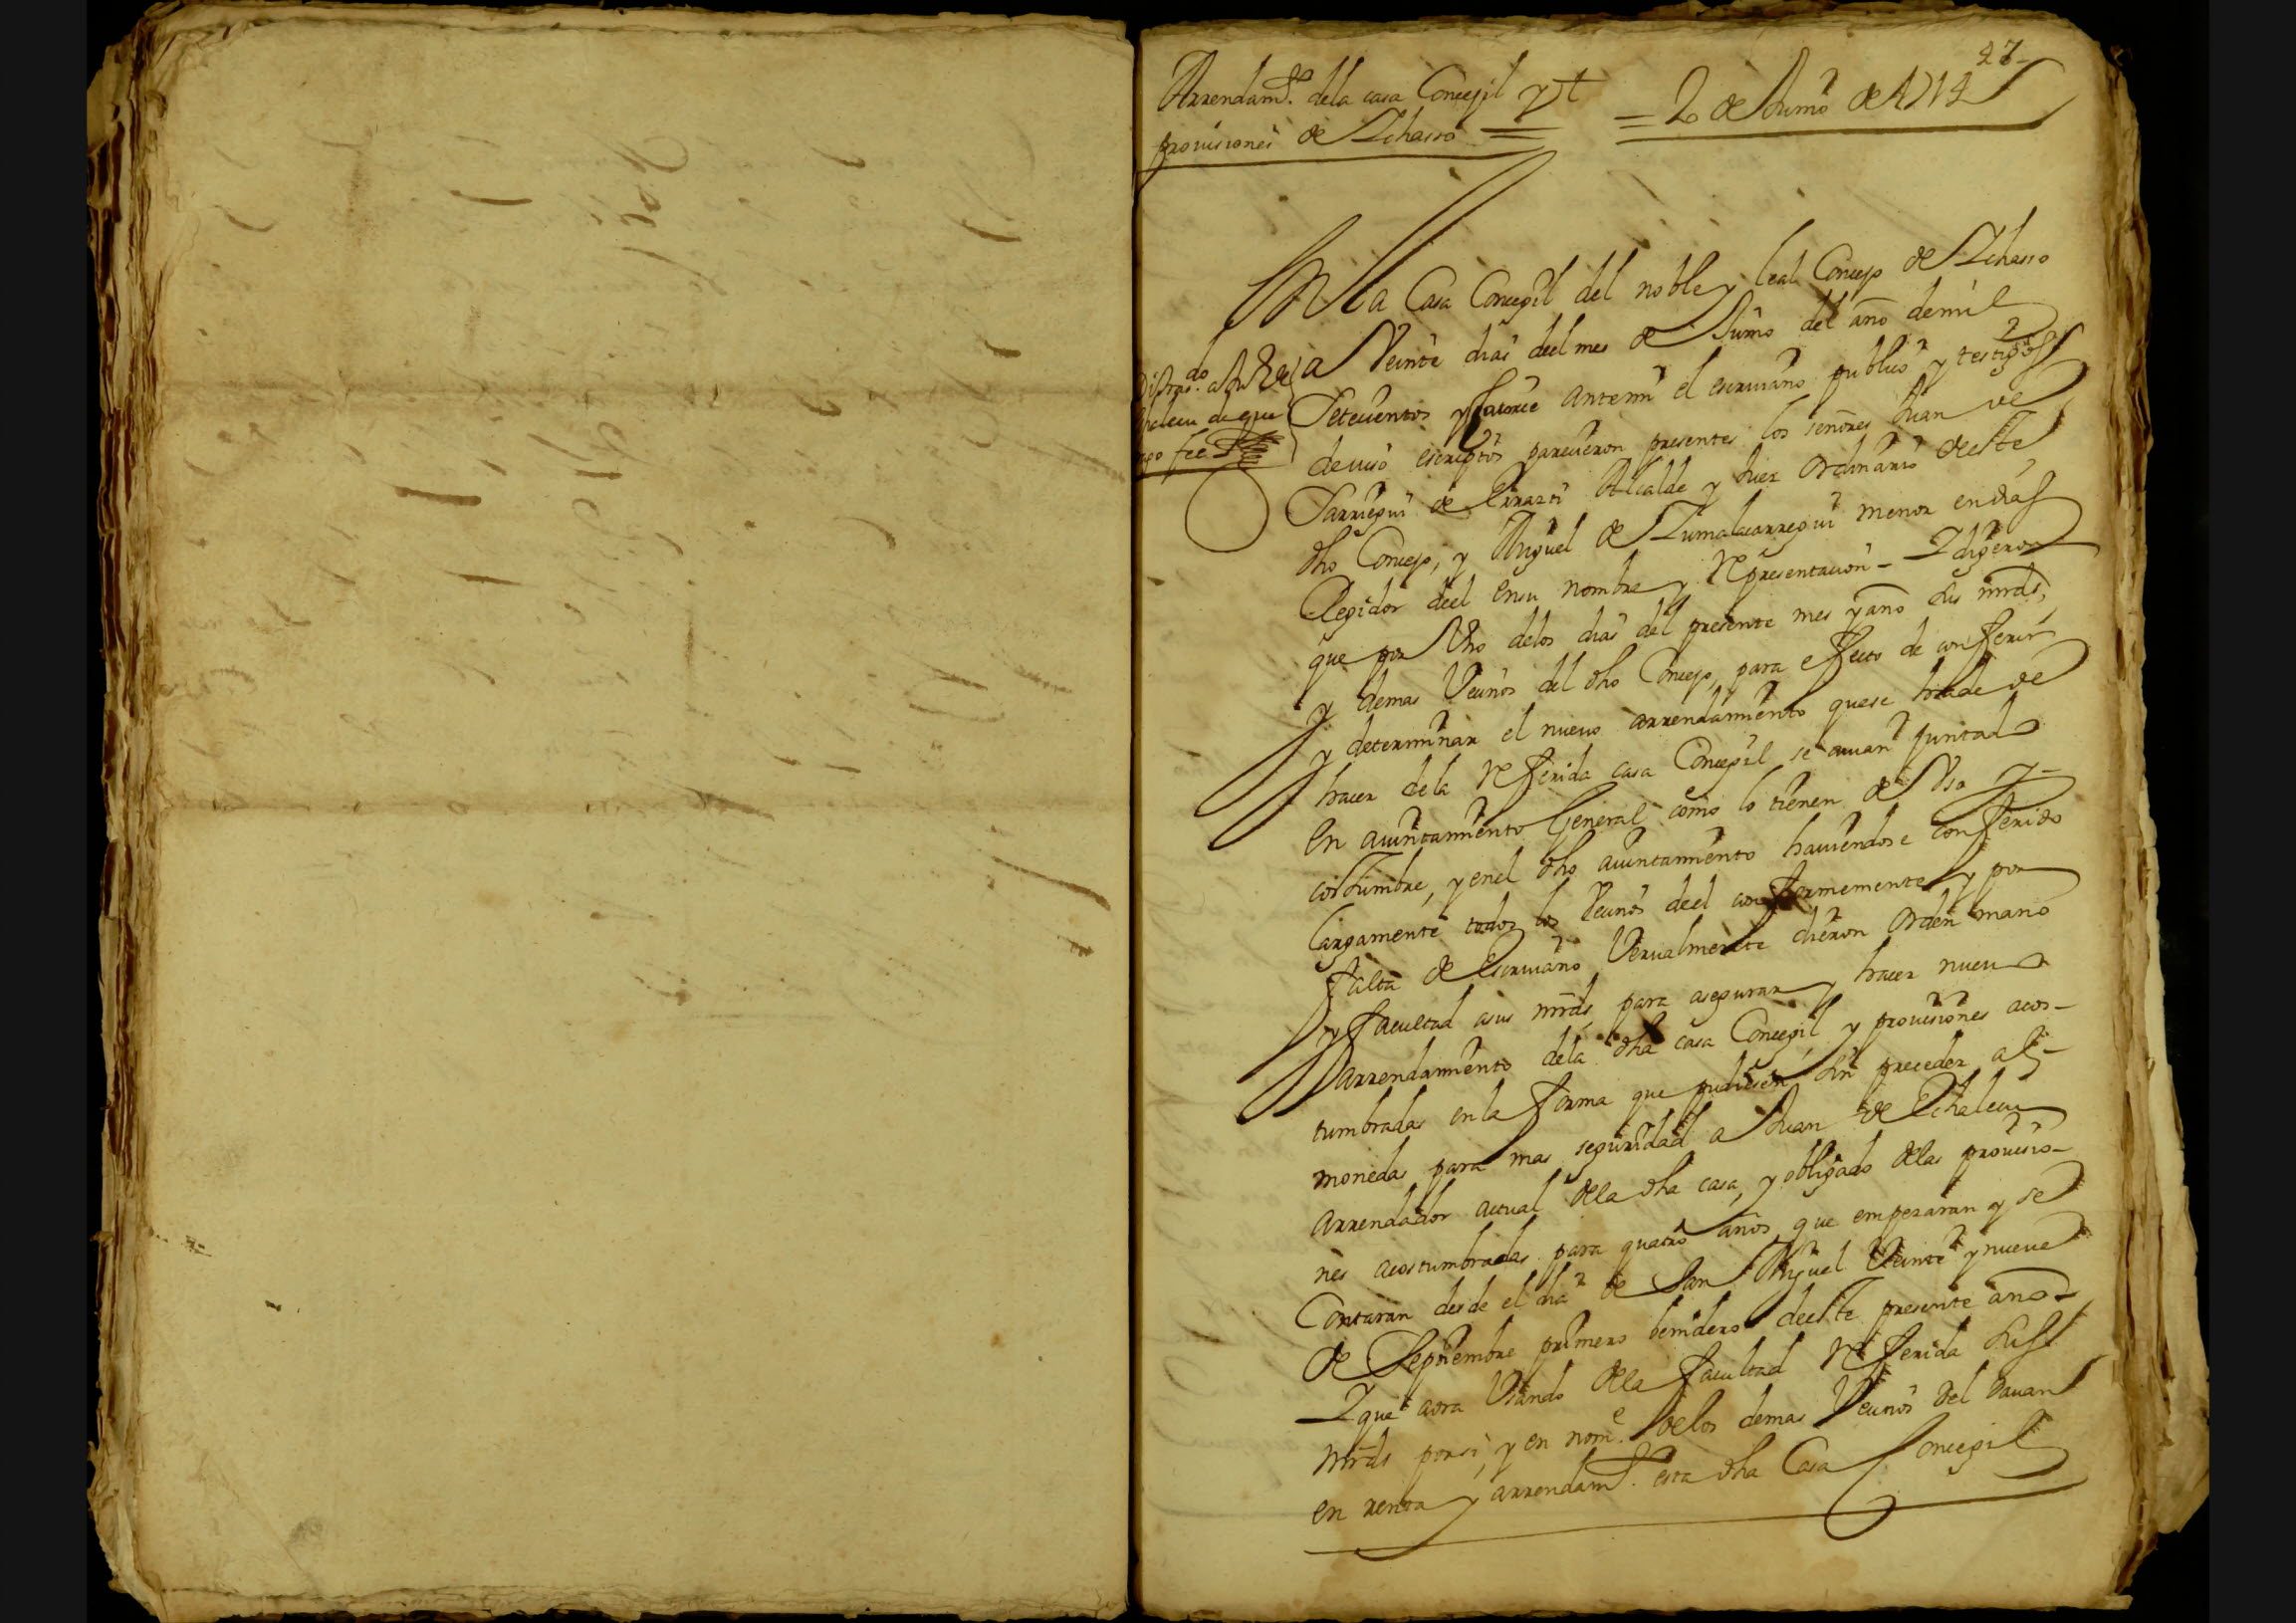 47
Arrendam.to dela casa Concegil y
provisiones de Ichasso = = 20 de Junio de 1714
En la Casa Concegil del noble y leal Concejo de Ichasso
a Veinte dias deel mes de Junio del año demil
Setecientos y Catorce antemi el escriuano publico y testigos
deiuso escriptos parecieron presentes los señores Juan de
Sarriegui de Lirarti Alcalde y Juez Ordinario deeste
dho Concejo, y Miguel de Zumalacarregui menor endias
Regidor deel en su nombre y Representacion - I digeron
que por Vno delos dias del presente mes y año sus mrds,
y demas Vecinos del dho Concejo, para efecto de conferir
y determinar el nuevo arrendamiento quese hade de
hacer dela Referida casa Concegil se auian juntado
En aiuntamiento General como lo tienen de Vso y-
costumbre, y enel dho aiuntamiento hauiendose conferido
largamente todos los Vecinos deel conformemente y por
falta de Escriuano Vervalmente dieron orden mano
y facultad asus mrds, para asegurar y hacer nueuo
Arrendamiento dela dha casa Concegil, y prouisiones acos-
tumbradas en la forma que pudiesen sin preceder al-
monedas para mas seguridad a Juan de Echalecu
Arrendador actual dela dha casa, y obligado delas prouisio-
nes acostumbradas para quatro años que empezaran y se
Contaran desde el dia de San Miguel Veinte y nueue
de Septiembre primero benidero deeste presente año-
I que aora Vsando dela facultad Referida sus
mrds porsi, y en nom.e delos demas Vecinos del dauan
en renta y arrendam.to esta dha Casa Concegil
Echalecu de que
doy fee